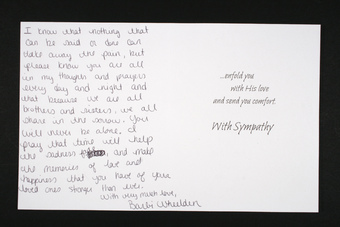 I know that nothing that
can be said or done can
take away the pain, but
please know you are all
in my thoughts and prayers
every day and night and
that because we are all
brothers and sisters, we all
share in the sorrow. You
will never be alone. I
pray that time will help
the sadness, and make
the memories of love and
happiness that you have of your
loved ones stronger than ever.
With very much love,
Barbi
...enfold you
with His love
and send you comfort.
With Sympathy